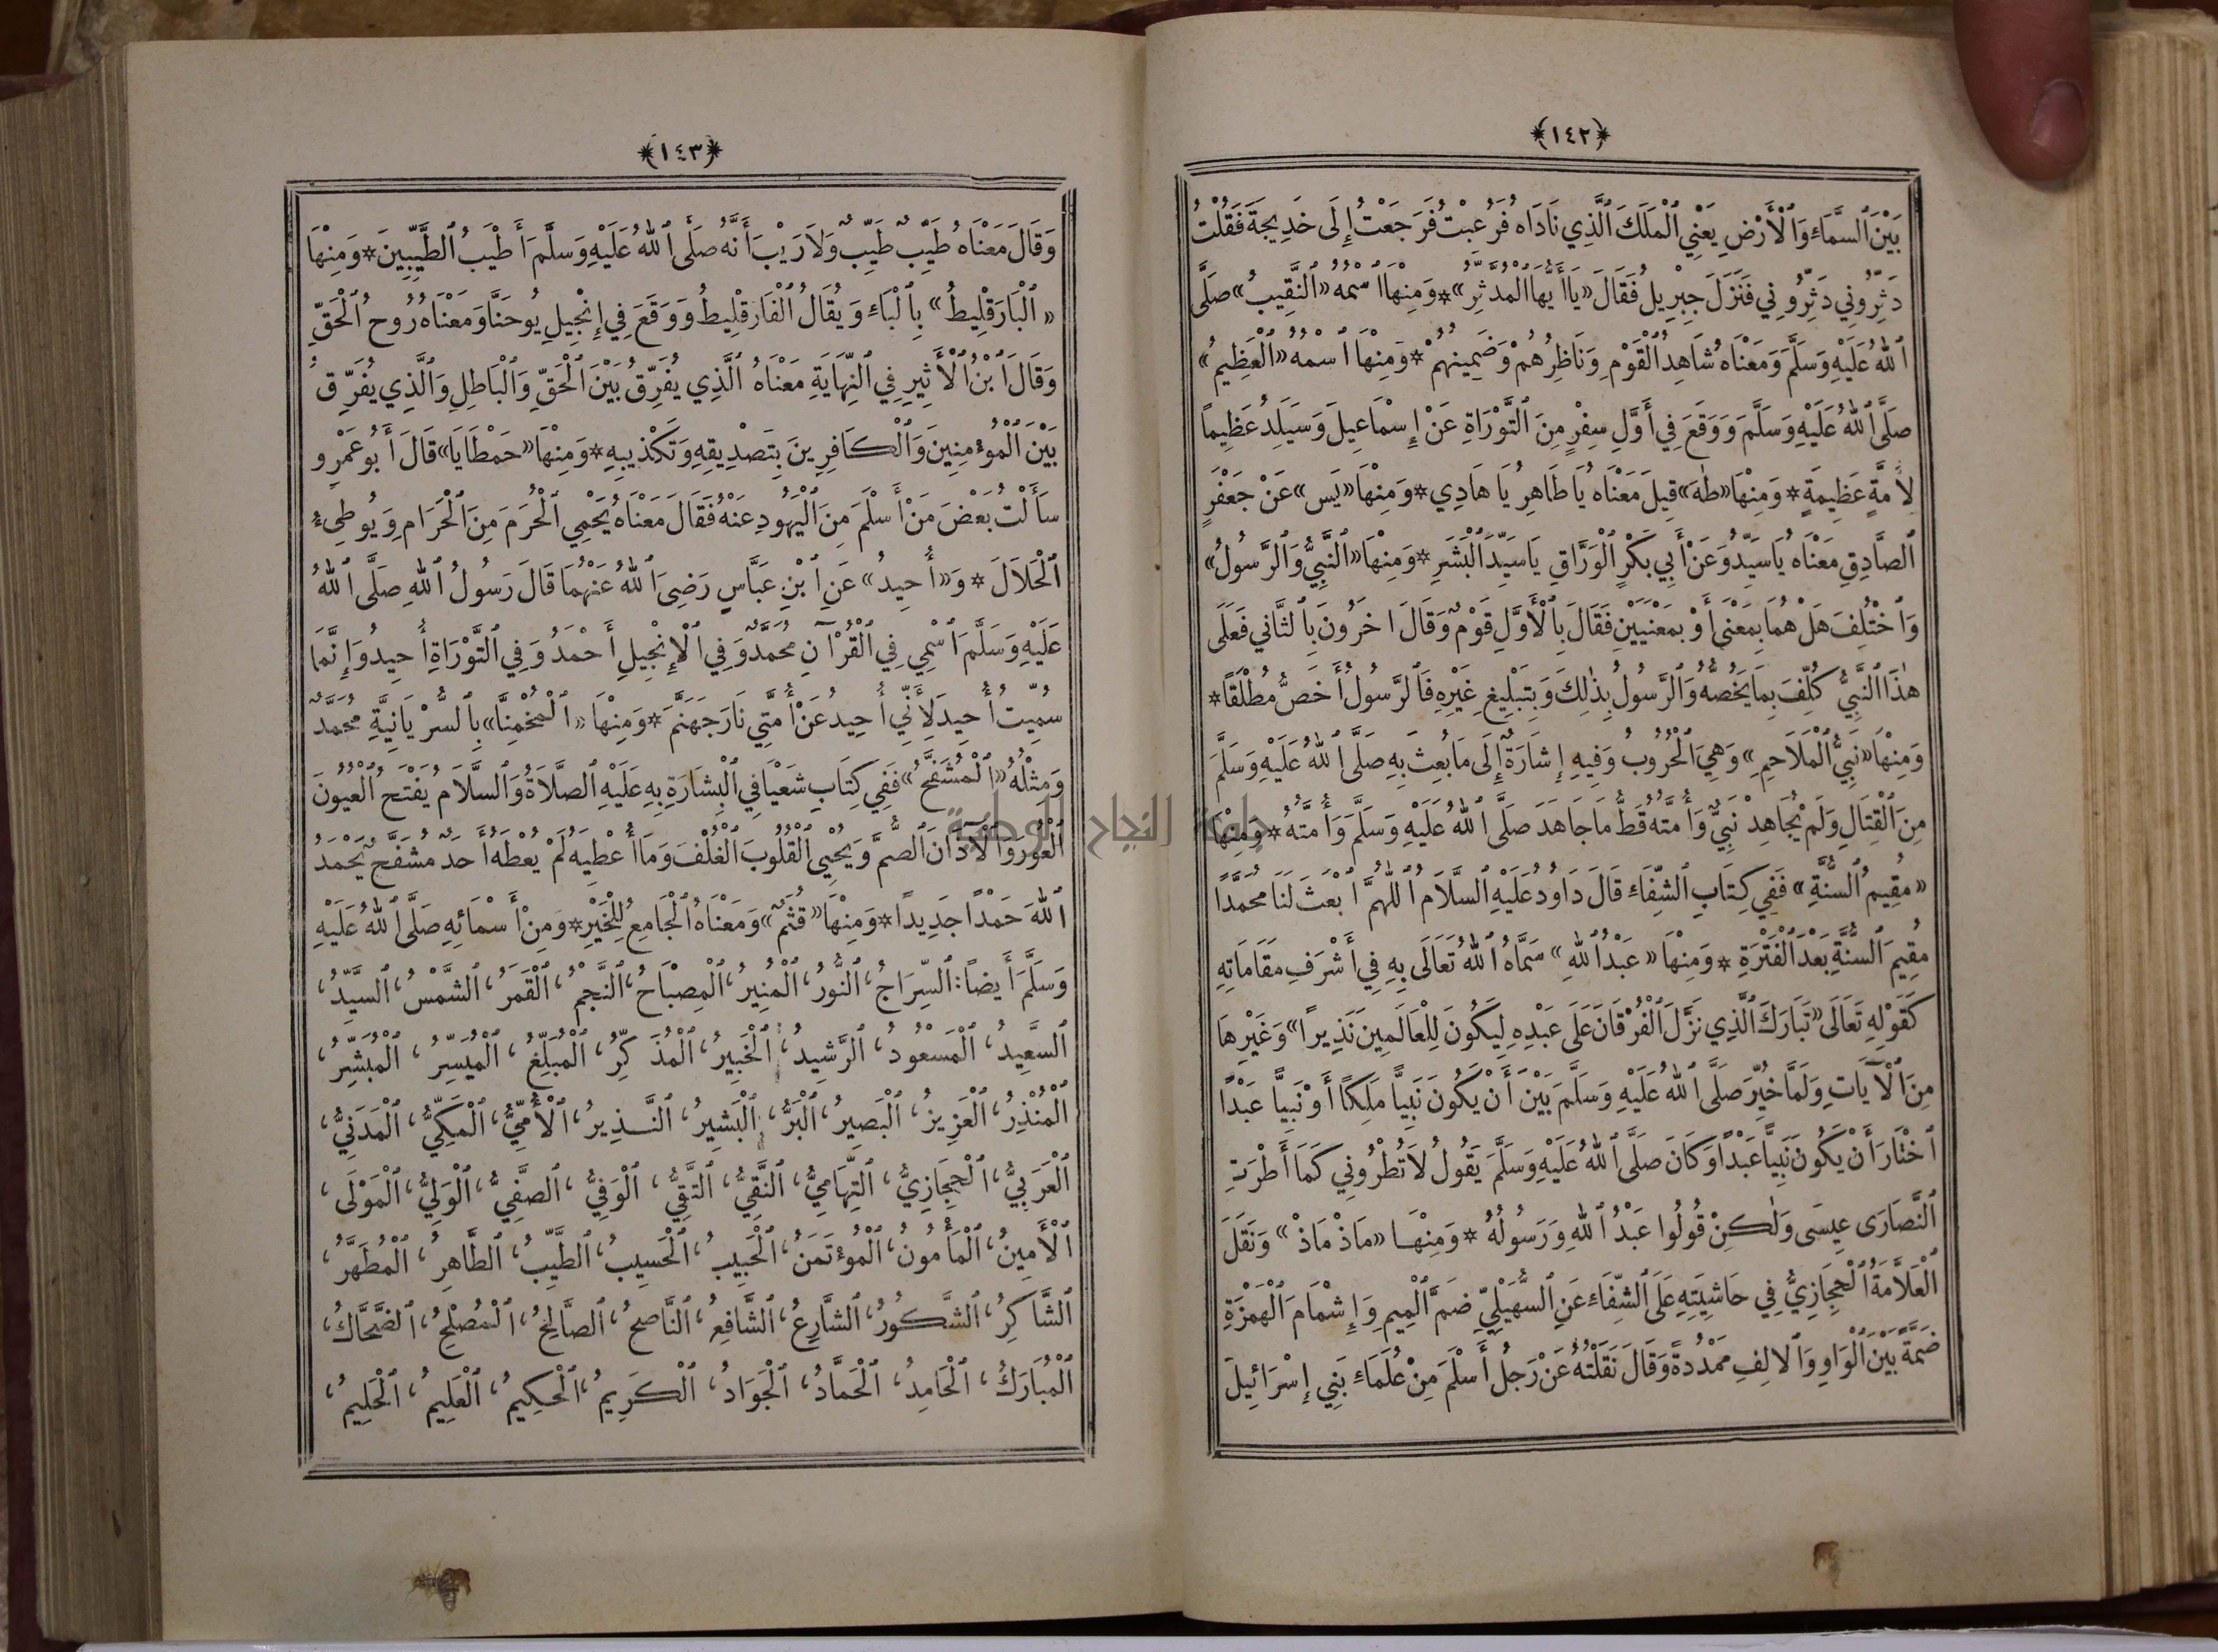 ﴿١٤٢﴾
بَيْنَ ٱلسَّمَاءِ وَٱلْأَرْضِ يَعْنِي ٱلْمَلَكَ ٱلَّذِي نَادَاهُ فَرُعِبْتُ فَرَجَعْتُ إِلَى خَدِيجَةَ فَقُلْتُ
دَثِّرُونِي دَثِّرُونِي فَنَزَلَ جِبْرِيلُ فَقَالَ «يَا أَيُّهَا ٱلْمُدَّثِّرُ» * وَمِنْهَا ٱسْمُهُ «ٱلنَّقِيبُ» صَلَّى
ٱللهُ عَلَيْهِ وَسَلَّمَ وَمَعْنَاهُ شَاهِدُ ٱلْقَوْمِ وَنَاظِرُهُمْ وَضَمِينُهُمْ * وَمِنْهَا ٱسْمُهُ «ٱلْعَظِيمُ»
صَلَّى ٱللهُ عَلَيْهِ وَسَلَّمَ وَوَقَعَ فِي أَوَّلِ سِفْرٍ مِنَ ٱلتَّوْرَاةِ عَنْ إِسْمَاعِيلَ وَسَيَلِدُ عَظِيمًا
لِأُمَّةٍ عَظِيمَةٍ * وَمِنْهَا «طٰهَ» قِيلَ مَعْنَاهُ يَا طَاهِرُ يَا هَادِي * وَمِنْهَا «يٰس» عَنْ جَعْفَرٍ
ٱلصَّادِقِ مَعْنَاهُ يَا سَيِّدُ وَعَنْ أَبِي بَكْرٍ ٱلْوَرَّاقِ يَا سَيِّدَ ٱلْبَشَرِ * وَمِنْهَا «ٱلنَّبِيُّ وَٱلرَّسُولُ»
وَٱخْتُلِفَ هَلْ هُمَا بِمَعْنًى أَوْ بِمَعْنَيَيْنِ فَقَالَ بِٱلْأَوَّلِ قَوْمٌ وَقَالَ آخَرُونَ بِٱلثَّانِي فَعَلَى
هٰذَا ٱلنَّبِيُّ كُلِّفَ بِمَا يَخُصُّهُ وَٱلرَّسُولُ بِذٰلِكَ وَبِتَبْلِيغِ غَيْرِهِ فَٱلرَّسُولُ أَخَصُّ مُطْلَقًا *
وَمِنْهَا «نَبِيُّ ٱلْمَلَاحِمِ» وَهِيَ ٱلْحُرُوبُ وَفِيهِ إِشَارَةٌ إِلَى مَا بُعِثَ بِهِ صَلَّى ٱللهُ عَلَيْهِ وَسَلَّمَ
مِنَ ٱلْقِتَالِ وَلَمْ يُجَاهِدْ نَبِيٌّ وَأُمَّتُهُ قَطُّ مَا جَاهَدَ صَلَّى ٱللهُ عَلَيْهِ وَسَلَّمَ وَأُمَّتُهُ * وَمِنْهَا
«مُقِيمُ ٱلسُّنَّةِ» فَفِي كِتَابِ ٱلشِّفَاءِ قَالَ دَاوُدُ عَلَيْهِ ٱلسَّلَامُ ٱللّٰهُمَّ ٱبْعَثْ لَنَا مُحَمَّدًا
مُقِيمَ ٱلسُّنَّةِ بَعْدَ ٱلْفَتْرَةِ * وَمِنْهَا «عَبْدُ ٱللهِ» سَمَّاهُ ٱللهُ تَعَالَى بِهِ فِي أَشْرَفِ مَقَامَاتِهِ
كَقَوْلِهِ تَعَالَى «تَبَارَكَ ٱلَّذِي نَزَّلَ ٱلْفُرْقَانَ عَلَى عَبْدِهِ لِيَكُونَ لِلْعَالَمِينَ نَذِيرًا» وَغَيْرِهَا
مِنَ ٱلْآيَاتِ وَلَمَّا خُيِّرَ صَلَّى ٱللهُ عَلَيْهِ وَسَلَّمَ بَيْنَ أَنْ يَكُونَ نَبِيًّا مَلِكًا أَوْ نَبِيًّا عَبْدًا
ٱخْتَارَ أَنْ يَكُونَ نَبِيًّا عَبْدًا وَكَانَ صَلَّى ٱللهُ عَلَيْهِ وَسَلَّمَ يَقُولُ لَا تُطْرُونِي كَمَا أَطْرَتِ
ٱلنَّصَارَى عِيسَى وَلٰكِنْ قُولُوا عَبْدُ ٱللهِ وَرَسُولُهُ * وَمِنْهَا «مَاذْ مَاذْ» وَنَقَلَ
ٱلْعَلَّامَةُ ٱلْحِجَازِيُّ فِي حَاشِيَتِهِ عَلَى ٱلشِّفَاءِ عَنِ ٱلسُّهَيْلِيِّ ضَمَّ ٱلْمِيمِ وَإِشْمَامَ ٱلْهَمْزَةِ
ضَمَّةً بَيْنَ ٱلْوَاوِ وَٱلْأَلِفِ مَمْدُودَةً وَقَالَ نَقَلْتُهُ عَنْ رَجُلٍ أَسْلَمَ مِنْ عُلَمَاءِ بَنِي إِسْرَائِيلَ
﴿١٤٣﴾
وَقَالَ مَعْنَاهُ طَيِّبٌ طَيِّبٌ وَلَا رَيْبَ أَنَّهُ صَلَّى ٱللهُ عَلَيْهِ وَسَلَّمَ أَطْيَبُ ٱلطَّيِّبِينَ * وَمِنْهَا
«ٱلْبَارَقْلِيطُ» بِٱلْبَاءِ وَيُقَالُ ٱلْفَارَقْلِيطُ وَوَقَعَ فِي إِنْجِيلِ يُوحَنَّا وَمَعْنَاهُ رُوحُ ٱلْحَقِّ
وَقَالَ ٱبْنُ ٱلْأَثِيرِ فِي ٱلنِّهَايَةِ مَعْنَاهُ ٱلَّذِي يُفَرِّقُ بَيْنَ ٱلْحَقِّ وَٱلْبَاطِلِ وَٱلَّذِي يُفَرِّقُ
بَيْنَ ٱلْمُؤْمِنِينَ وَٱلْكَافِرِينَ بِتَصْدِيقِهِ وَتَكْذِيبِهِ * وَمِنْهَا «حَمْطَايَا» قَالَ أَبُو عَمْرٍو
سَأَلْتُ بَعْضَ مَنْ أَسْلَمَ مِنَ ٱلْيَهُودِ عَنْهُ فَقَالَ مَعْنَاهُ يَحْمِي ٱلْحُرَمَ مِنَ ٱلْحَرَامِ وَيُوطِئُ
ٱلْحَلَالَ * وَ«أُحِيدُ» عَنِ ٱبْنِ عَبَّاسٍ رَضِيَ ٱللهُ عَنْهُمَا قَالَ رَسُولُ ٱللهِ صَلَّى ٱللهُ
عَلَيْهِ وَسَلَّمَ ٱسْمِي فِي ٱلْقُرْآنِ مُحَمَّدٌ وَفِي ٱلْإِنْجِيلِ أَحْمَدُ وَفِي ٱلتَّوْرَاةِ أُحِيدُ وَإِنَّمَا
سُمِّيتُ أُحِيدَ لِأَنِّي أُحِيدُ عَنْ أُمَّتِي نَارَ جَهَنَّمَ * وَمِنْهَا «ٱلْمُنْحَمِنَّا» بِٱلسُّرْيَانِيَّةِ مُحَمَّدٌ
وَمِثْلُهُ «ٱلْمُشَفَّحُ» فَفِي كِتَابِ شَعْيَا فِي ٱلْبِشَارَةِ بِهِ عَلَيْهِ ٱلصَّلَاةُ وَٱلسَّلَامُ يَفْتَحُ ٱلْعُيُونَ
ٱلْعُورَ وَٱلْآذَانَ ٱلصُّمَّ وَيُحْيِي ٱلْقُلُوبَ ٱلْغُلْفَ وَمَا أُعْطِيهِ لَمْ يُعْطَهُ أَحَدٌ مُشَفَّحٌ يَحْمَدُ
ٱللهَ حَمْدًا جَدِيدًا * وَمِنْهَا «قُثَمُ» وَمَعْنَاهُ ٱلْجَامِعُ لِلْخَيْرِ * وَمِنْ أَسْمَائِهِ صَلَّى ٱللهُ عَلَيْهِ
وَسَلَّمَ أَيْضًا: ٱلسِّرَاجُ، ٱلنُّورُ، ٱلْمُنِيرُ، ٱلْمِصْبَاحُ، ٱلنَّجْمُ، ٱلْقَمَرُ، ٱلشَّمْسُ، ٱلسَّيِّدُ،
ٱلسَّعِيدُ، ٱلْمَسْعُودُ، ٱلرَّشِيدُ، ٱلْخَبِيرُ، ٱلْمُذَكِّرُ، ٱلْمُبَلِّغُ، ٱلْمُيَسِّرُ، ٱلْمُبَشِّرُ،
ٱلْمُنْذِرُ، ٱلْعَزِيزُ، ٱلْبَصِيرُ، ٱلْبَرُّ، ٱلْبَشِيرُ، ٱلنَّذِيرُ، ٱلْأُمِّيُّ، ٱلْمَكِّيُّ، ٱلْمَدَنِيُّ،
ٱلْعَرَبِيُّ، ٱلْحِجَازِيُّ، ٱلتِّهَامِيُّ، ٱلنَّقِيُّ، ٱلتَّقِيُّ، ٱلْوَفِيُّ، ٱلصَّفِيُّ، ٱلْوَلِيُّ، ٱلْمَوْلَى،
ٱلْأَمِينُ، ٱلْمَأْمُونُ، ٱلْمُؤْتَمَنُ، ٱلْحَبِيبُ، ٱلْحَسِيبُ، ٱلطَّيِّبُ، ٱلطَّاهِرُ، ٱلْمُطَهَّرُ،
ٱلشَّاكِرُ، ٱلشَّكُورُ، ٱلشَّارِعُ، ٱلشَّافِعُ، ٱلنَّاصِحُ، ٱلصَّالِحُ، ٱلْمُصْلِحُ، ٱلضَّحَّاكُ،
ٱلْمُبَارَكُ، ٱلْحَامِدُ، ٱلْحَمَّادُ، ٱلْجَوَادُ، ٱلْكَرِيمُ، ٱلْحَكِيمُ، ٱلْعَلِيمُ، ٱلْحَلِيمُ،
جامعة النجاح الوطنية